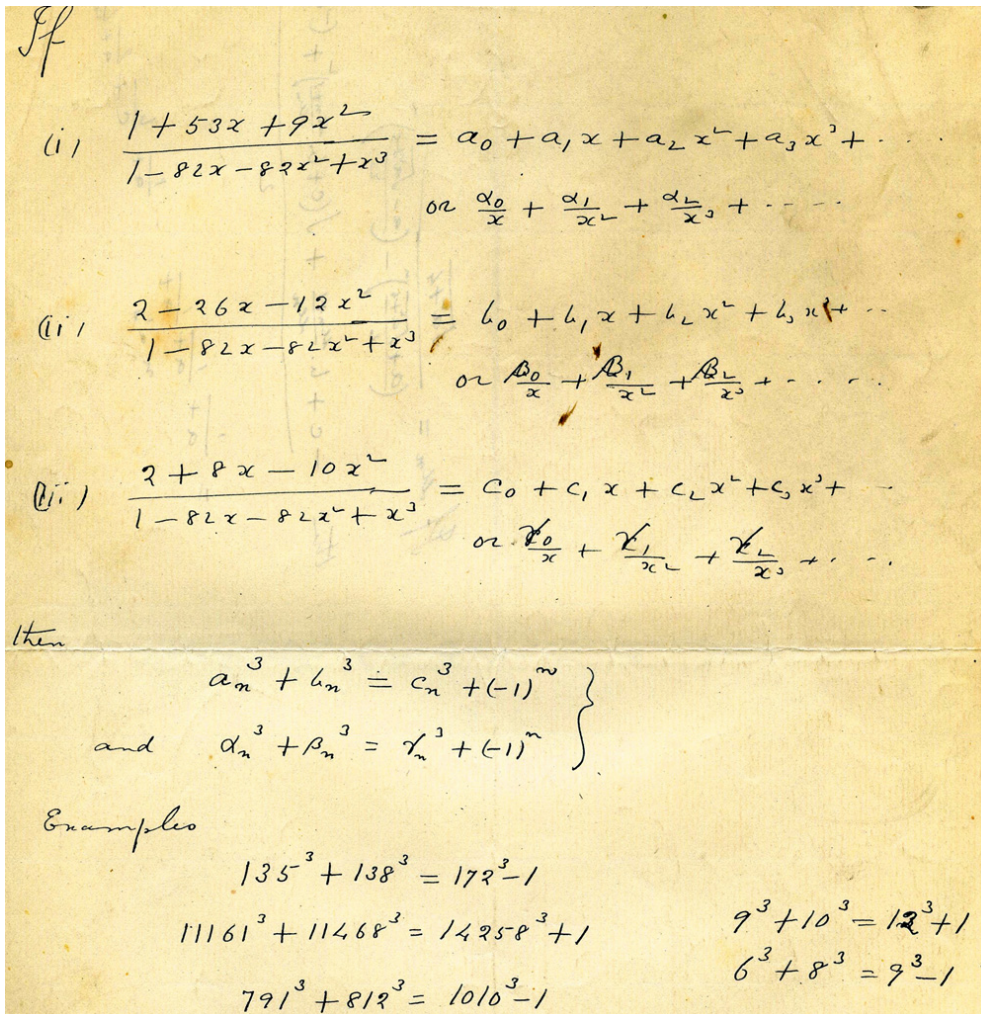 If
(i) (1 + 53x + 9x²)/(1 - 82x - 82x² + x³) = a₀ + a₁x + a₂x² + a₃x³ + ....
or α₀/x + α₁/x² + α₂/x³ + .....
(ii) (2 - 26x - 12x²)/(1 - 82x - 82x² + x³) = b₀ + b₁x + b₂x² + b₃x³ + ..
or β₀/x + β₁/x² + β₂/x³ + .....
(iii) (2 + 8x - 10x²)/(1 - 82x - 82x² + x³) = c₀ + c₁x + c₂x² + c₃x³ + ..
or γ₀/x + γ₁/x² + γ₂/x³ + ....
then
aₙ³ + bₙ³ = cₙ³ + (-1)ⁿ }
and αₙ³ + βₙ³ = γₙ³ + (-1)ⁿ
Examples
135³ + 138³ = 172³ - 1
11161³ + 11468³ = 14258³ + 1
791³ + 812³ = 1010³ - 1
9³ + 10³ = 12³ + 1
6³ + 8³ = 9³ - 1